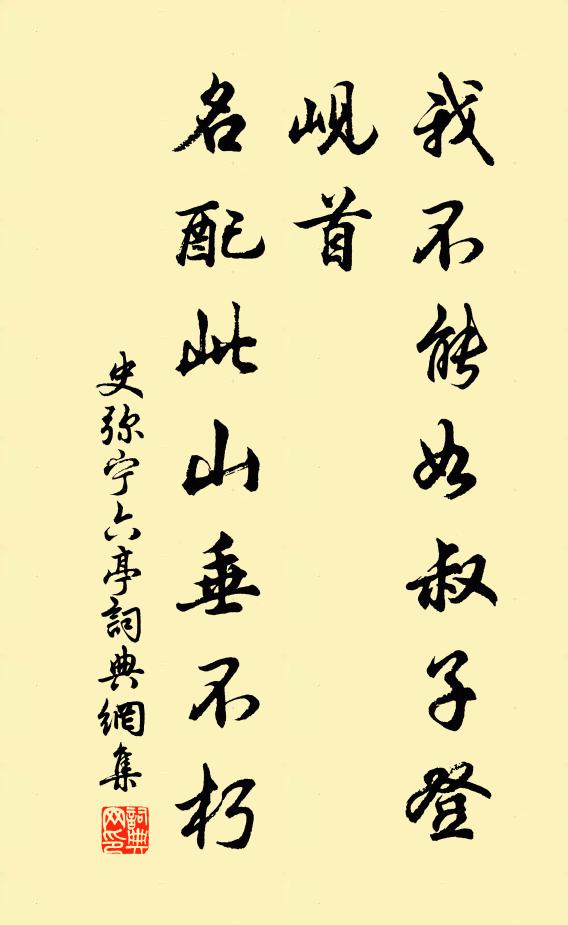 我不能如叔子登
峴首
名配此山垂不朽
史弥宁六亭詞典網集
詞典
网印